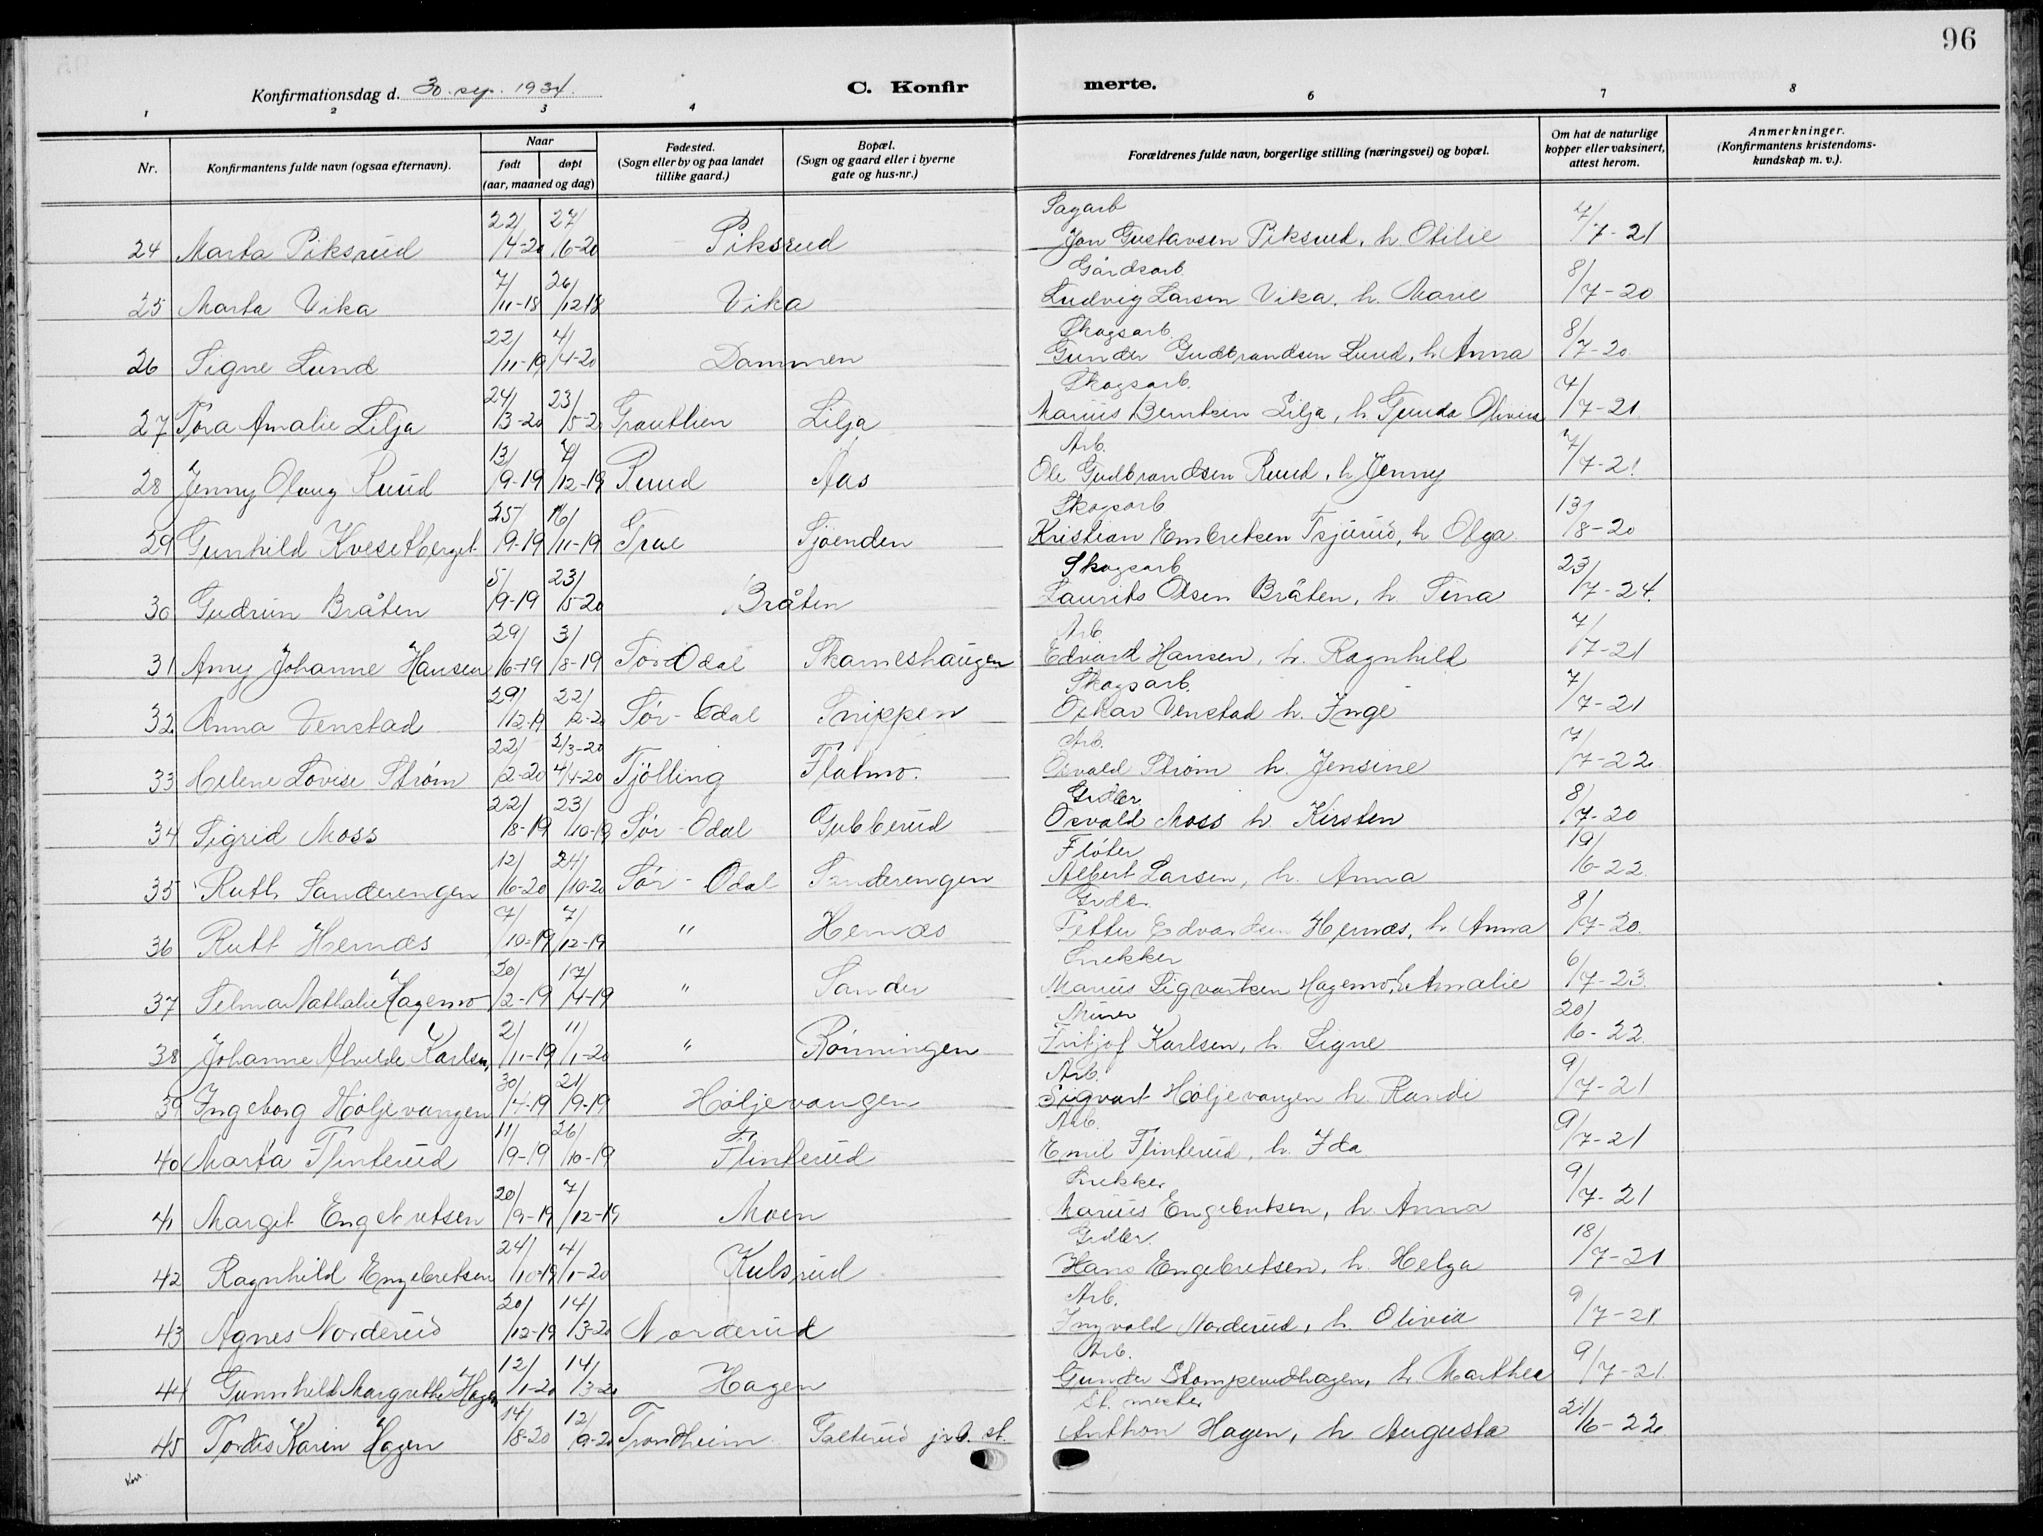 96
Konfirmationsdag d. 30. sep. 1934.
C. Konfirmerte.
1 2 3 4 6 7 8
Nr. | Konfirmantens fulde navn (ogsaa efternavn). | Naar født døpt (aar, maaned og dag) | Fødested. (Sogn eller by og paa landet tillike gaard.) | Bopæl. (Sogn og gaard eller i byerne gate og hus-nr.) | Forældrenes fulde navn, borgerlige stilling (næringsvei) og bopæl. | Om hat de naturlige kopper eller vaksinert, attest herom. | Anmerkninger. (Konfirmantens kristendomskundskap m. v.).
24 Marta Piksrud 22/4-20 27/6-20 Piksrud Sagarb Jon Gustavsen Piksrud, h. Otilie 7/7-21
25 Marta Vika 7/11-18 26/12 18 Vika Gårdsarb. Ludvig Larsen Vika, h. Marie 8/7-20
26 Signe Lund 22/11-19 4/4-20 Dammen Skogsarb. Gunder Gudbrandsen Lund, h Anna 8/7-20
27 Tora Amalie Lilja 24/3-20 23/5-20 Lilja Skogsarb. Marius Berntsen Lilja, h Gunda Olivia 7/7-21
28 Jenny Olaug Ruud 13/9-19 7/12-19 Ruud Aas Arb. Ole Gudbrandsen Ruud, h Jenny 7/7-21
29 Gunhild Kvesetberget 25/9-19 16/11-19 Grue Sjøenden Skogsarb Kristian Embretsen h Olga 13/8-20
30 Gudrun Bråten 5/9-19 23/5-20 Bråten Skogsarb Laurits Olsen Bråten, h Tina 23/7-24.
31 Amy Johanne Hansen 29/6-19 3/8-19 Sør Odal Skarneshaugen Arb. Edvard Hansen, h. Ragnhild 7/7-21
32 Anna Venstad 29/12-19 22/2-20 Sør-Odal Snippen Skogsarb. Oskar Venstad h. Inge 7/7-21
33 Helene Lovise Strøm 22/2-20 2/3-20 4/4-20 Tjølling Flatmo. Arb. Osvald Strøm h. Jensine 7/7-22
34 Sigrid Moss 22/8-19 23/10-19 Sør-Odal Gubberud Grdbr. Osvald Moss h. Kirsten 8/7-20
35 Ruth Sanderengen 12/6-20 24/10-20 Sør-Odal Sanderengen Fløter Albert Larsen, h. Anna 19/6-22
36 Rutt Hernæs 7/10-19 7/12-19 " Hernæs Grdbr. Petter Edvardsen Hernæs, h. Anna 8/7-20
37 Selma Nathalie Hagemo 20/2-19 17/4-19 " Sander Snekker Marius Sigvartsen Hagemo, h Amalie 6/7-23
38 Johanne Alvilde Karlsen, 2/11-19 11/1-20 " Rønningen Murer Fritjof Karlsen, h. Signe 20/6-22
39 Ingeborg Høljevangen 30/4-19 21/9-19 Høljevangen Arb. Sigvart Høljevangen h. Randi 9/7-21
40 Marta Flinterud 11/9-19 26/10-19 Flinterud Arb. Emil Flinterud, h. Ida 9/7-21
41 Margit Engebretsen 20/9-19 7/12-19 Moen Snekker Marius Engebretsen, h. Anna 9/7-21
42 Ragnhild Engebretsen 24/10-19 4/1-20 Kulsrud Grdbr. Hans Engebretsen, h. Helga 18/7-21
43 Agnes Norderud 20/12-19 14/3-20 Norderud Arb. Ingvald Norderud, h. Olivia 9/7-21
44 Gunnhild Margrethe Hagen 12/1-20 14/3-20 Hagen Arb. Gunder Stomperudhagen, h. Marthea 9/7-21
45 Tordis Karin Hagen 14/8-20 12/9-20 Trondheim Galterud jrb. st. St. mester Anthon Hagen, h Augusta 21/6-22